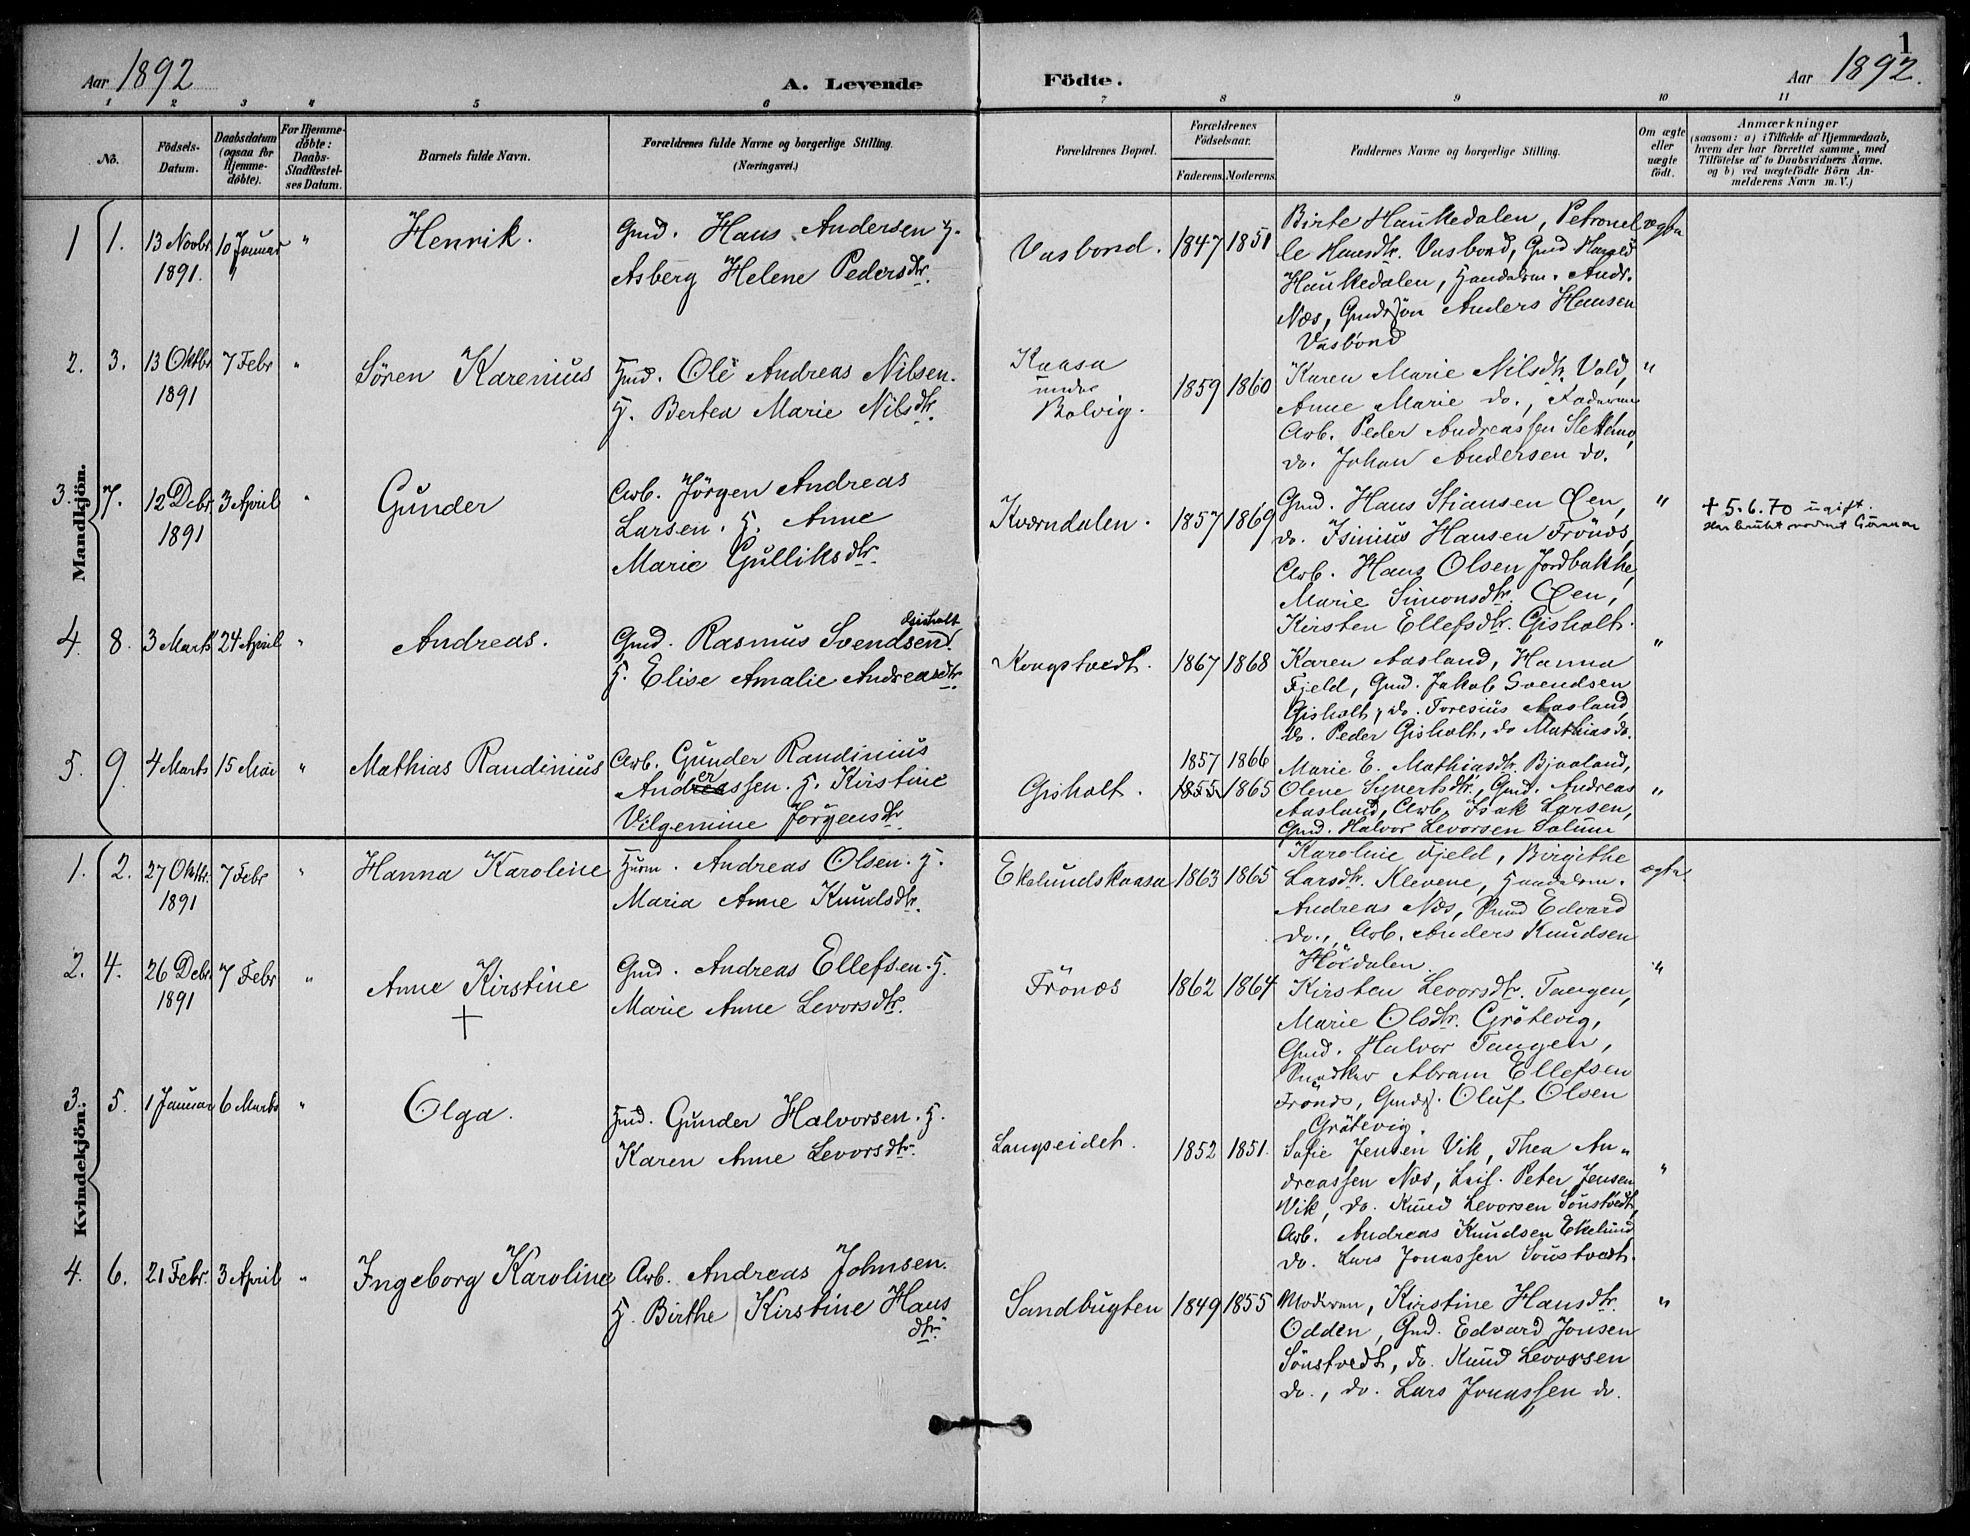 1
Aar 1892
A. Levende
Födte.
Aar 1892.
1 2 3 4 5 6 7 8 9 10 11
No.
Födsels-
Datum.
Daabsdatum
(ogsaa for
Hjemme-
döbte).
For Hjemme-
döbte:
Daabs-
Stadfestel-
ses Datum.
Barnets fulde Navn.
Forældrenes fulde Navne og borgerlige Stilling.
(Næringsvei.)
Forældrenes Bopæl.
Forældrenes
Födselsaar.
Faderens. Moderens.
Faddernes Navne og borgerlige Stilling.
Om ægte
eller
uægte
födt.
Anmærkninger
(saasom: a) i Tilfælde af Hjemmedaab,
hvem der har forrettet samme, med
Tilföielse af to Daabsvidners Navne,
og b) ved uægtefödte Börn An-
melderens Navn m. V.)
Mandkjön.
1 1. 13 Novbr
1891.
10 Januar
"
Henrik.
Gmd. Hans Andersen H.
Asberg Helene Pedersdtr.
Vasbond.
1847 1851
Birte Haukedalen, Petronel
le Hansdtr. Vasbond, Gmd Harald
Haukedalen, Handelsm. Andr.
Næs, Gmdssön Anders Hansen
Vasbond
ægte
2. 3. 13 Oktbr
1891
7 Febr
"
Sören Karenius
Hmd. Ole Andreas Nilsen.
H. Bertea Marie Nilsdtr.
Kaasa
under
Bolvig.
1859 1860
Karen Marie Nilsdtr. Vold,
Anne Marie do., Faderen
Arb. Peder Andreassen Sletterno,
do. Johan Andersen do.
"
3. 7. 12 Debr
1891
3 April
"
Gunder
Arb. Jörgen Andreas
Larsen. H. Anne
Marie Gulliksdtr.
Kværndalen.
1857 1869
Gmd. Hans Stiansen Öen,
do. Isinius Hansen Frönæs,
Arb. Hans Olsen Jordbakke,
Marie Simonsdtr. Öen,
Kirsten Ellefsdtr. Gisholt.
"
+ 5.6.70 ugift.
Har brukt navnet Gunnar
4. 8. 3 Marts
24 April
"
Andreas.
Gmd. Rasmus Svendsen Gisholt.
H. Elise Amalie Andreasdtr.
Kongstvedt.
1867 1868
Karen Aasland, Hanna
Fjeld, Gmd. Jakob Svendsen
Gisholt, do. Toresius Aasland,
do. Peder Gisholt, do Mathias do.
"
5. 9. 4 Marts
15 Mai
"
Mathias Randinius
Arb. Gunder Randinius
Anderssen. H. Kirstine
Vilgemine Jörgensdtr.
Gisholt.
1857 1866
1855 1865
Marie E. Mathiasdtr. Bjaaland,
Olene Syvertsdtr., Gmd. Andreas
Aasland, Arb. Isak Larsen,
Gmd. Halvor Levorsen Solum
"
Kvindekjön.
1. 2. 27 Oktbr.
1891
7 Febr
"
Hanna Karoline
Husm. Andreas Olsen. H.
Maria Anne Knudsdtr.
Ekelundskaasa
1863 1865
Karoline Fjeld, Birgithe
Larsdtr. Klevene, Handelsm.
Andreas Næs, Smed Edvard
do., Arb. Anders Knudsen
Höidalen.
ægte.
2. 4. 26 Debr.
1891
7 Febr
"
Anne Kirstine
+
Gmd. Andreas Ellefsen. H.
Marie Anne Levorsdtr.
Frönæs
1862 1864
Kirsten Levorsdtr. Tangen,
Marie Olsdtr. Grötevig,
Gmd. Halvor Tangen,
Snedker Abram Ellefsen
Frönæs, Gmds. Oluf Olsen
Grötevig.
"
3. 5. 1 Januar
6 Marts
"
Olga.
Hmd. Gunder Halvorsen. H.
Karen Anne Levorsdtr.
Langseidet.
1852 1851.
Sofie Jensen Vik, Thea An-
dreassen Næs, Peter Jensen
Vik, do. Knud Levorsen Sönstvedt,
Arb. Andreas Knudsen Ekelund
do. Lars Jonassen Sönstvedt.
"
4. 6. 21 Febr.
3 April
"
Ingeborg Karoline
Arb. Andreas Johnsen.
H. Birthe Kirstine Hans
dtr.
Sandbugten
1849 1855
Moderen, Kirstine Hansdtr.
Odden, Gmd. Edvard Jonsen
Sönstvedt, do. Knud Levorsen
do., do. Lars Jonassen do.
"